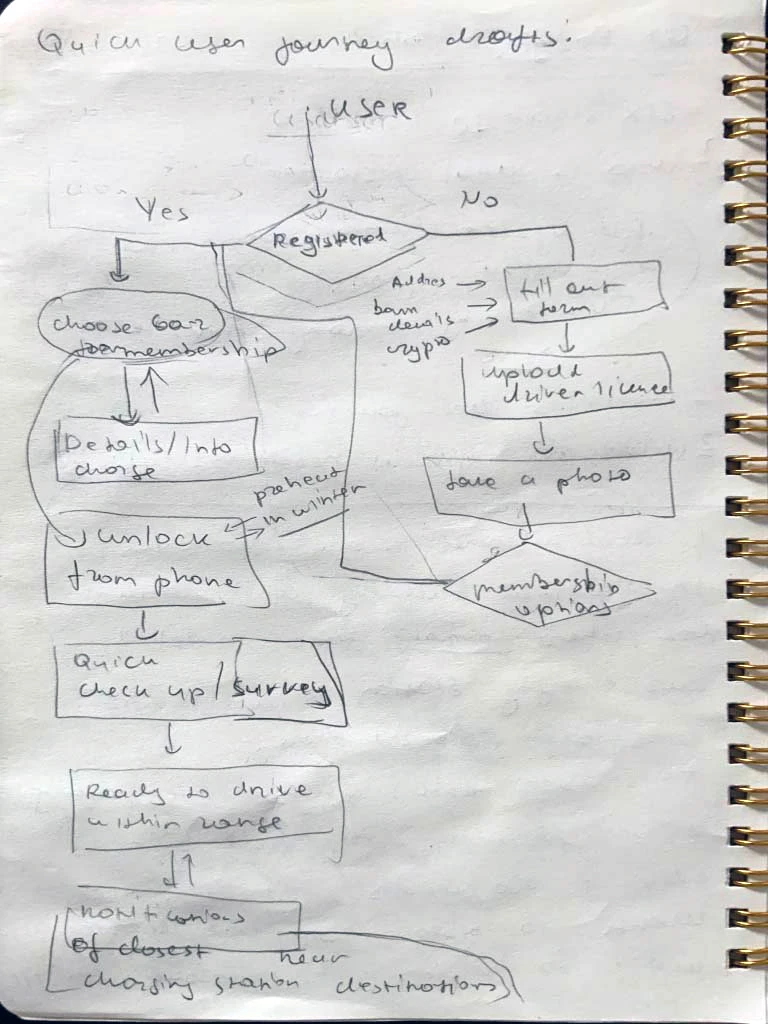 Quick user journey drafts:
USER
Yes
No
Registered
Addres
bank
details
crypto
fill out
form
choose car
membership
upload
driver licence
Details/Info
charge
take a photo
preheat
in winter
unlock
from phone
membership
options
Quick
check up/survey
Ready to drive
within range
notifications
of closest near
charging station destinations